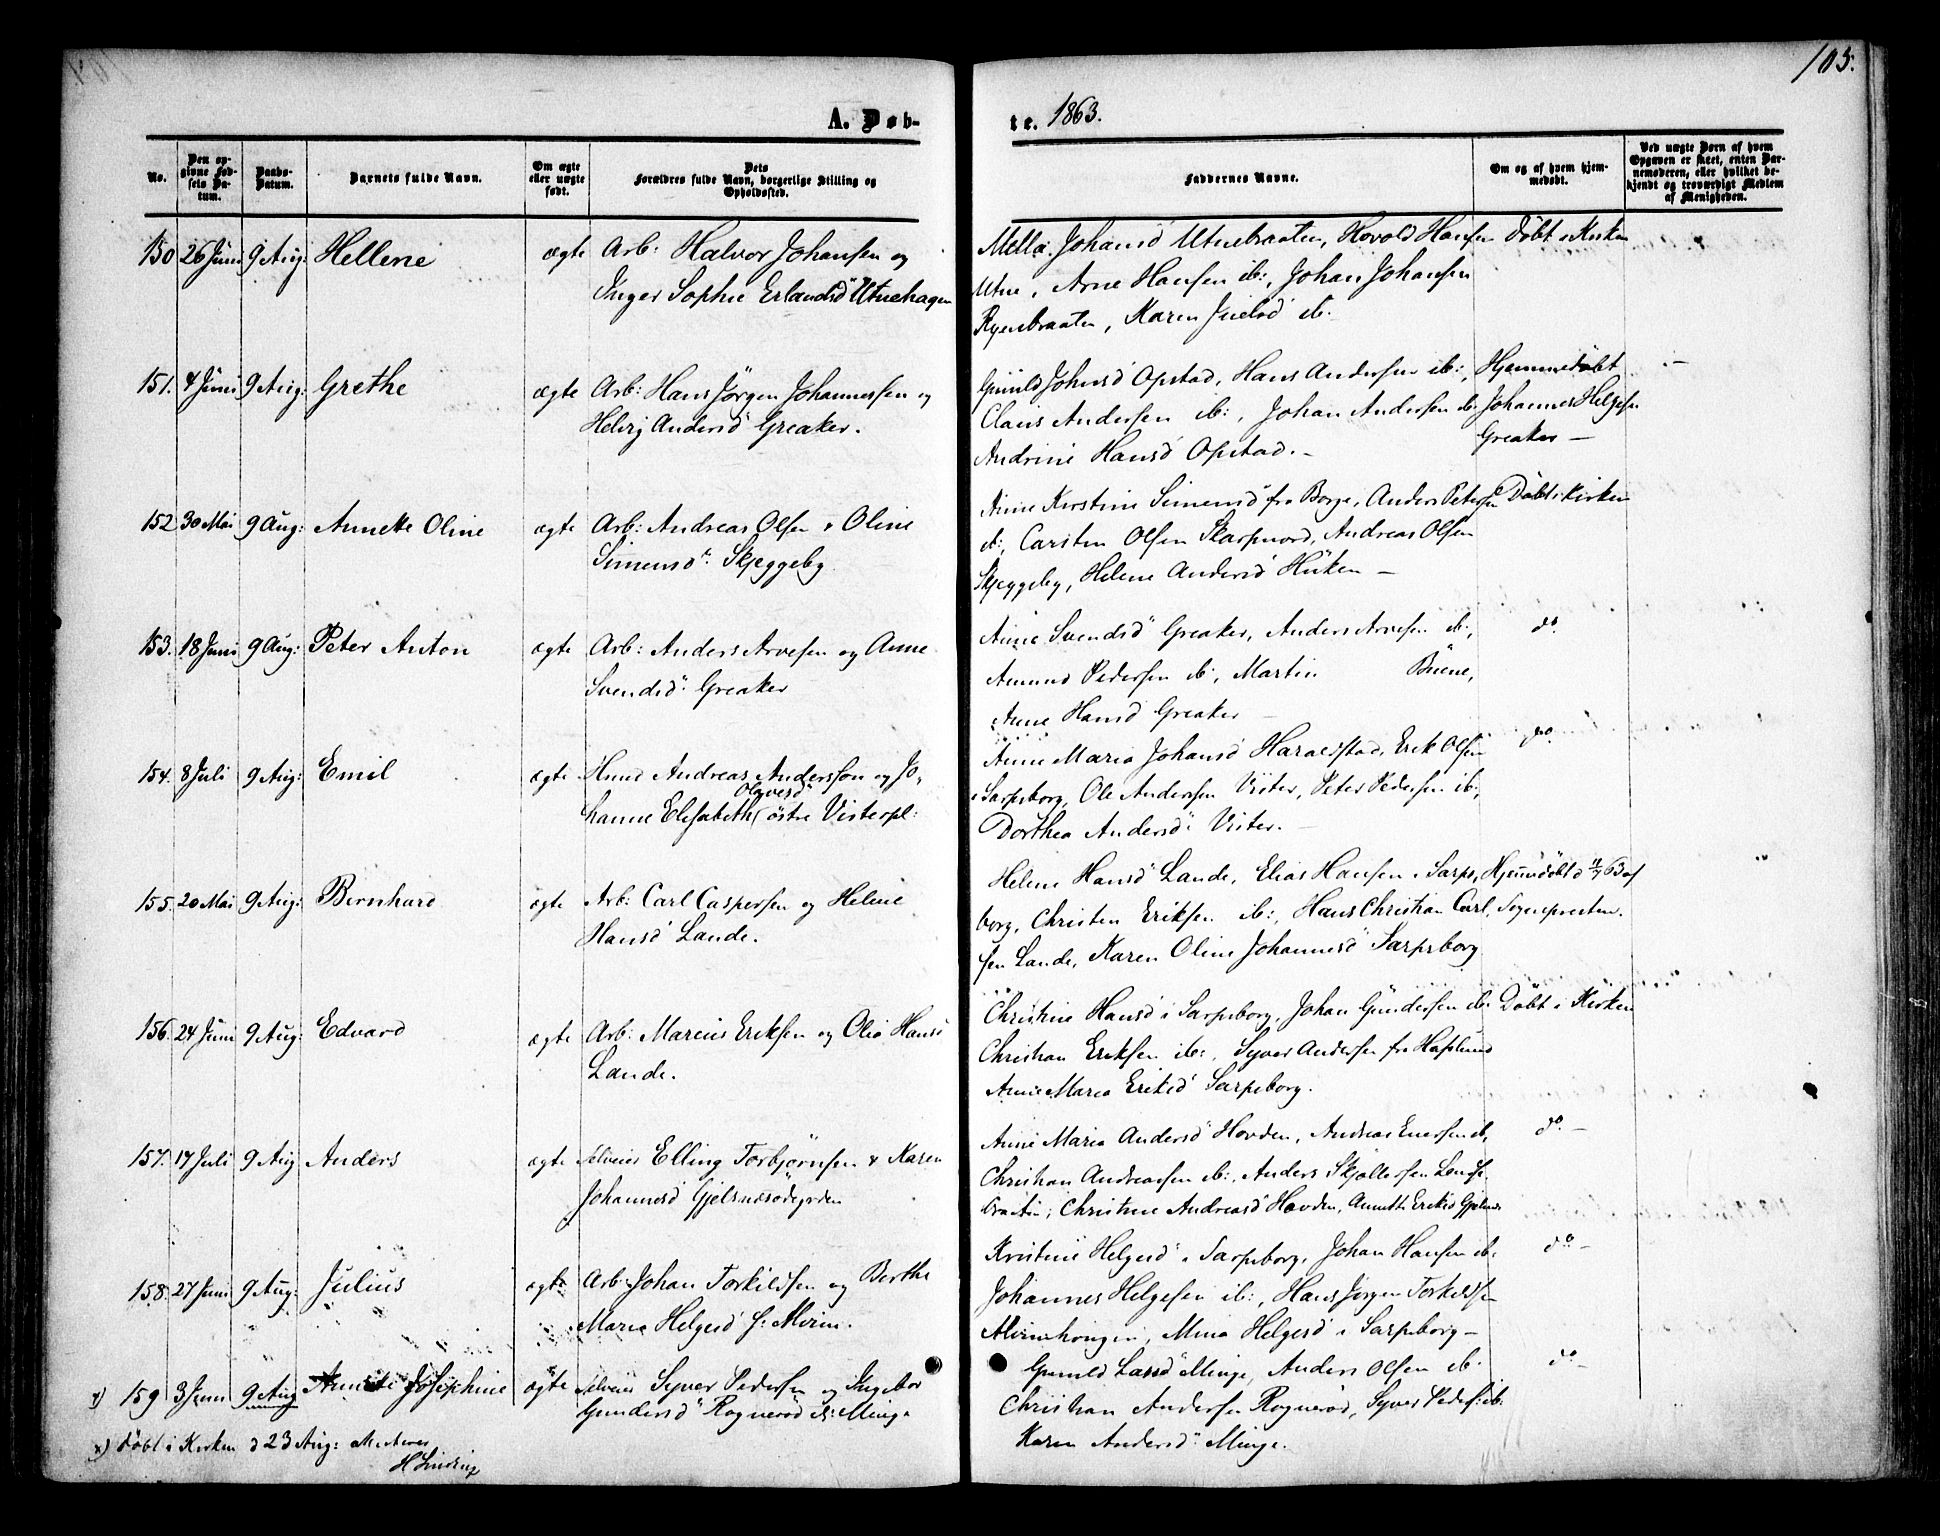 105.
A. Døb-
te. 1863.
No.
Den opgivne Fødsels Datum.
Daabs-Datum.
Barnets fulde Navn.
Om ægte eller uægte født.
Dets Forældres fulde Navn, borgerlige Stilling og Opholdssted.
Faddernes Navne.
Om og af hvem hjemmedøbt.
Ved uægte Børn af hvem Opgaven er skeet, enten Barnemoderen, eller hvilket bekjendt og troværdigt Medlem af Menigheden.
150 26 Juni 9 Aug: Hellene ægte Arb: Halvor Johansen og
Inger Sophie Erlandsd" Utnehagen
Johansd Utnebraaten, Hovold Hansen Døbt i Kirken
Utne, Arne Hansen ib:, Johan Johansen
Ryenbraaten, Karen ib.
151. 4 Juni 9 Aug: Grethe ægte Arb: Hans Jörgen Johannessen og
Helvig Andersd Greaker.
Gunild Johnsd Opstad, Hans Andersen ib:, Hjemmedøbt
Claus Andersen ib:, Johan Andersen ib: Johannes Helgesen
Andrine Hansd Opstad. - Greaker —
152 30 Mai 9 Aug: Annette Oline ægte Arb: Andreas Olsen & Oline
Simensdr: Skjeggeby
Anne Kirstine Simensd" fra Borge, Anders Petersen Døbt i Kirken
ib:, Carsten Olsen Skarpnord, Andreas Olsen
Skjeggeby, Helene Andersd —
153. 18 Juni 9 Aug: Peter Anton ægte Arb: Anders Arvesen og Anne
Svendsd" Greaker
Anne Svendsd" Greaker, Anders Arvesen ib:, do.
Amund Pedersen ib:, Martin
Anne Hansd Greaker —
154. 8 Juli 9 Aug: Emil ægte Husm Andreas Andersson og Jo-
Olavesd"
hanne Elisabeth östre Visterpl:
Anne Maria Johansd Haraldstad, Erik Olsen do.
i Sarpsborg, Ole Andersen Vister, Peter Pedersen ib:,
Dorthea Andersd" Vister. —
155. 20 Mai 9 Aug: Bernhard ægte Arb: Carl Caspersen og Helene
Hansd Lande.
Helene Hansd" Lande, Elias Hansen i Sarps- Hjemmedøbt d 11/7 63 af
borg, Christen Eriksen ib:, Hans Christian Carl- Sognepresten.
sen Lande, Karen Oline Johannesd" Sarpsborg
156. 24 Juni 9 Aug: Edvard ægte Arb: Marcus Eriksen og Olia Hansd
Lande.
Christine Hansd i Sarpsborg, Johan Gundersen ib: Døbt i Kirken
Christian Eriksen ib:, Syver Andersen fra Hafslund
Anne Maria Eriksd Sarpsborg.
157. 17 Juli 9 Aug Anders ægte Selveier Elling Torbjörnsen & Karen
Johannesd Gjelsnæsödegrden
Anne Maria Andersd Hovden, Andreas Enersen ib, do. —
Christian Andreassen ib:, Anders Skjöllersen
Christine Andreasd Hovden, Annette Eriksd
158. 27 Juni 9 Aug: Julius ægte Arb: Johan Torkildsen og Berthe
Maria Helgesd
Kristine Helgesd" i Sarpsborg, Johan Hansen ib: do —
Johannes Helgesen ib:, Hans Jörgen Torkildsen
Mina Helgesd i Sarpsborg —
x) 159 3 Juni 9 Aug Annette Josephine ægte Selveier Syver Pedersen og Ingebor
Gundersd" Rognerød Minge
Gunild Larsd" Minge, Anders Olsen ib. do —
Christian Andersen Rognerød, Syver Peders: ib.
Karen Andersd" Minge.
x) döbt i Kirken d 23 Aug: